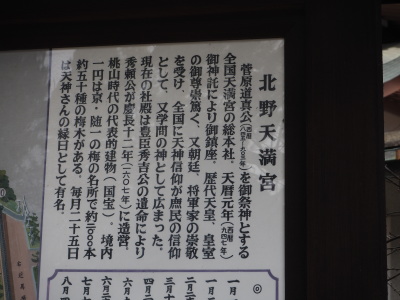 北野天満宮
◎
菅原道真公(西暦八四五-九〇三年)を御祭神とする
全国天満宮の総本社、天暦元年(西暦九四七年)
御神託により御鎮座、歴代天皇、皇室
の御尊崇篤く、又朝廷、将軍家の崇敬
を受け、全国に天神信仰が庶民の信仰
として、又学問の神として広まった。
現在の社殿は豊臣秀吉公の遺命により
秀頼公が慶長十二年(一六〇七年)に造営。
桃山時代の代表的建物(国宝)、境内
一円は京・随一の梅の名所で約二、〇〇〇本
約五十種の梅木がある。毎月二十五日
は天神さんの縁日として有名。